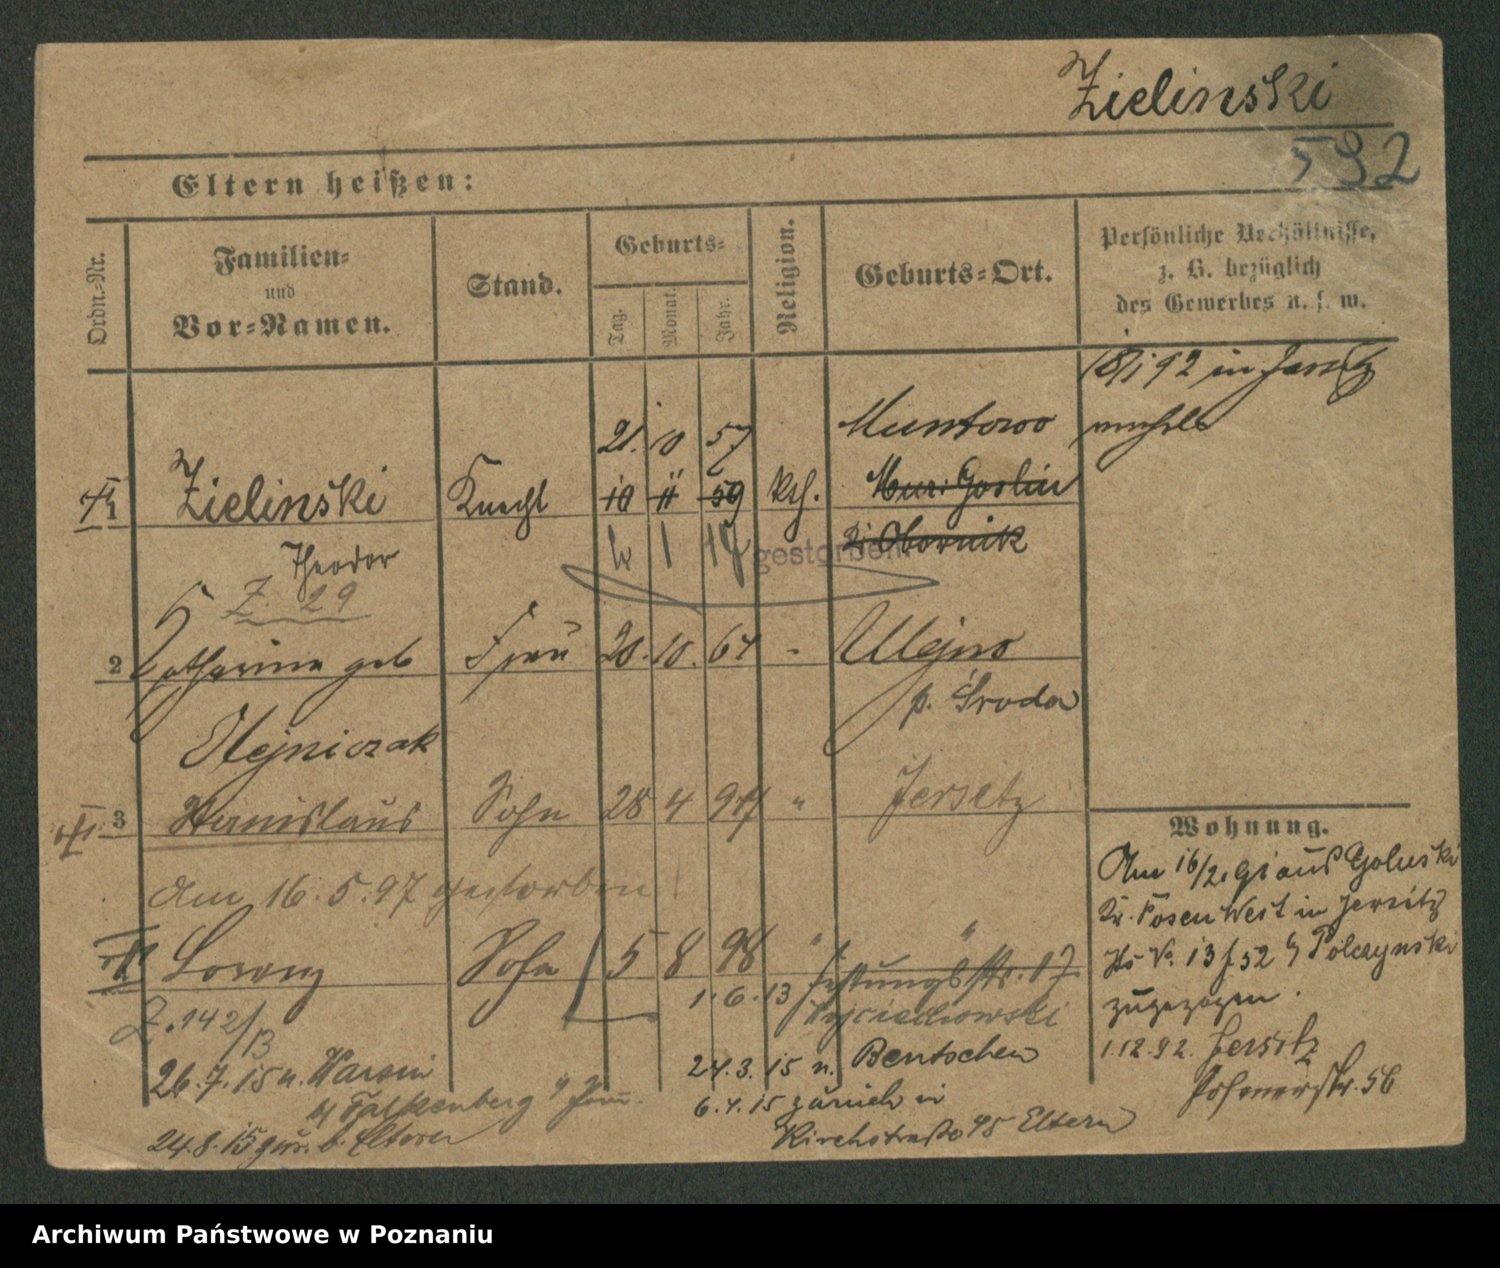 Zielinski
592
Eltern heißen:
Ordn.-Nr.
Familien-
und
Vor-Namen.
Stand.
Geburts-
Tag.
Monat.
Jahr.
Religion.
Geburts-Ort.
Persönliche Verhältnisse,
z. B. bezüglich
des Gewerbes u. s. w.
18/1 92 in Jersitz
21. 10 57 Muntowo
1 Zielinski Knecht 10 11 59 kth. Mur: Goslin
Theodor 1 17 gestorben Obornik
Z. 29
2 Catharina geb Frau 20. 10. 64 - Ulejno
p. Środa
Olejniczak
3 Stanislaus Sohn 28 4 97 " Jersitz
Am 16.5.97 gestorben!
Lorenz Sohn 5 8 98 " "
1.6.13 Festungsstr. 17
Wojciechowski
Z. 142/13
26.7.15 n.
b/ Falkenberg
24.8.15 zur. b. Eltern
24.3.15 n. Bentschen
6.4.15 zurück in
Kirchstraße 45 Eltern
Wohnung.
Am 16/2. 91 aus Goluski
Kr. Posen West in Jersitz
Hs No. 13 f 52 b/ Polczynski
zugezogen.
1.12.92. Jersitz
Posenerstr. 56
Archiwum Państwowe w Poznaniu